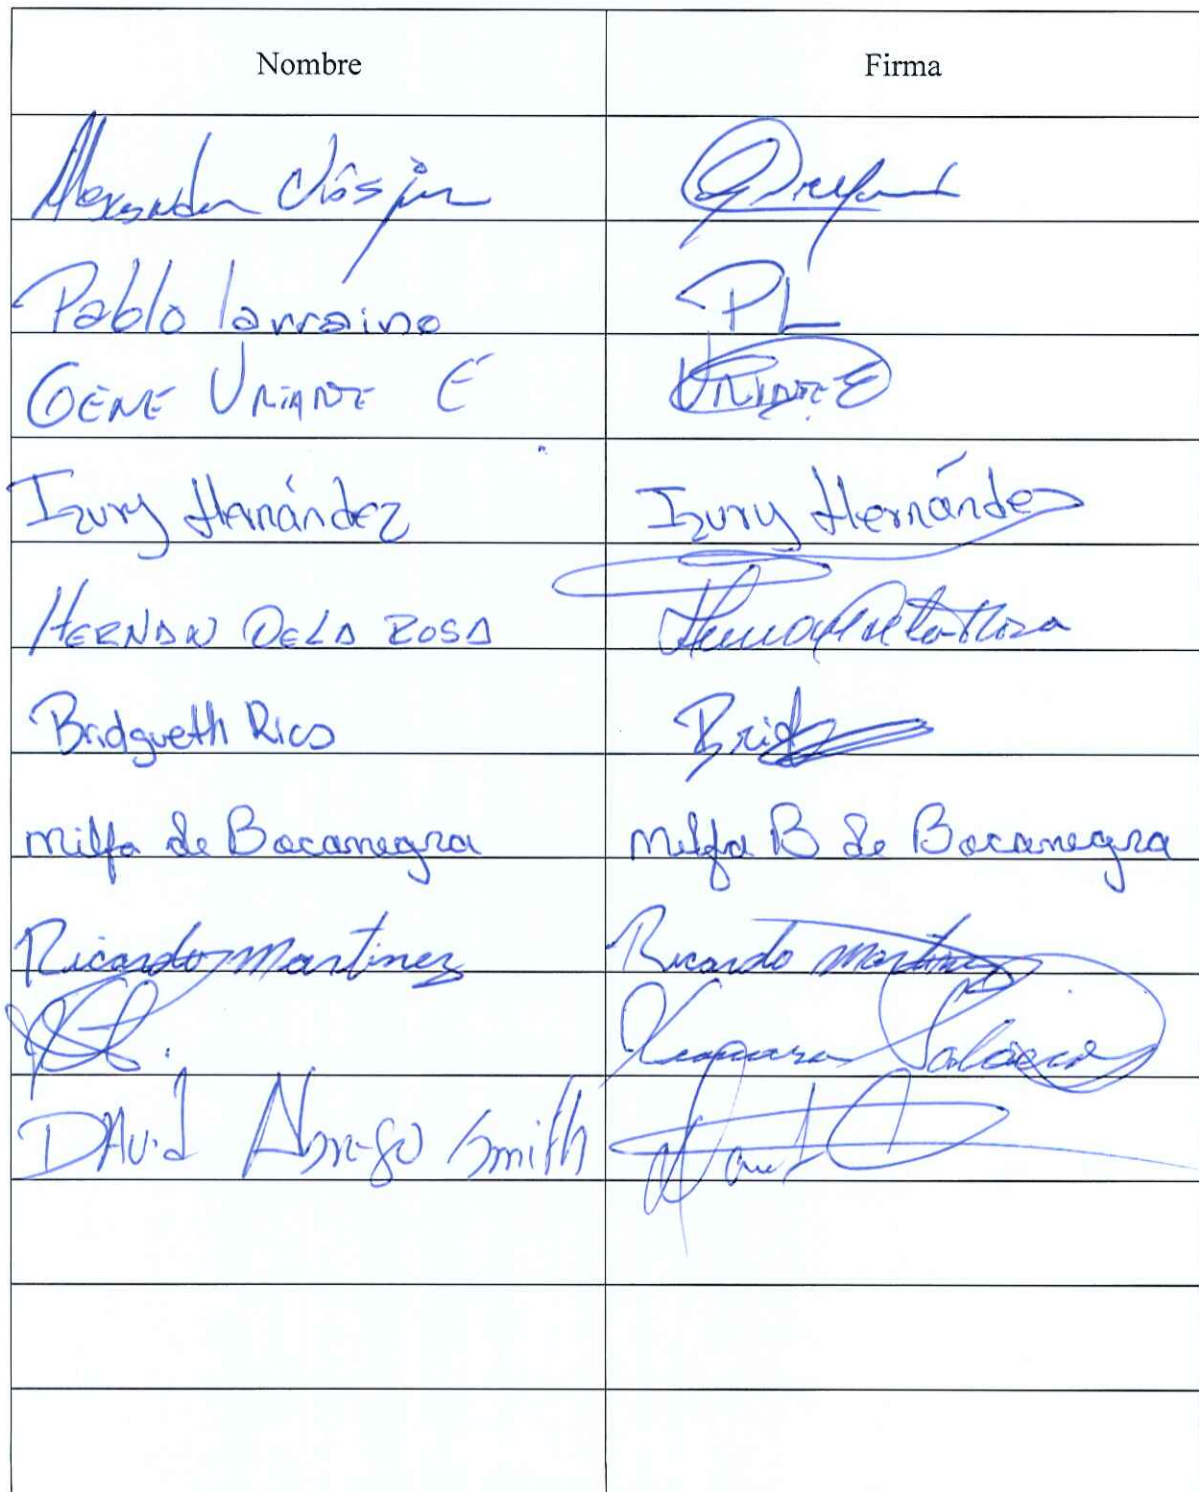 Nombre Firma
Alexander
Pablo larraino PL
GENE URIARTE E URIARTE E
Izury Hernández Izury Hernández
HERNAN DE LA ROSA
Bridgueth Rico Brid
milfa de Bocanegra milfa B de Bocanegra
Ricardo Martinez Ricardo Martinez
Xiomara Palacios
DAvid Abrego Smith